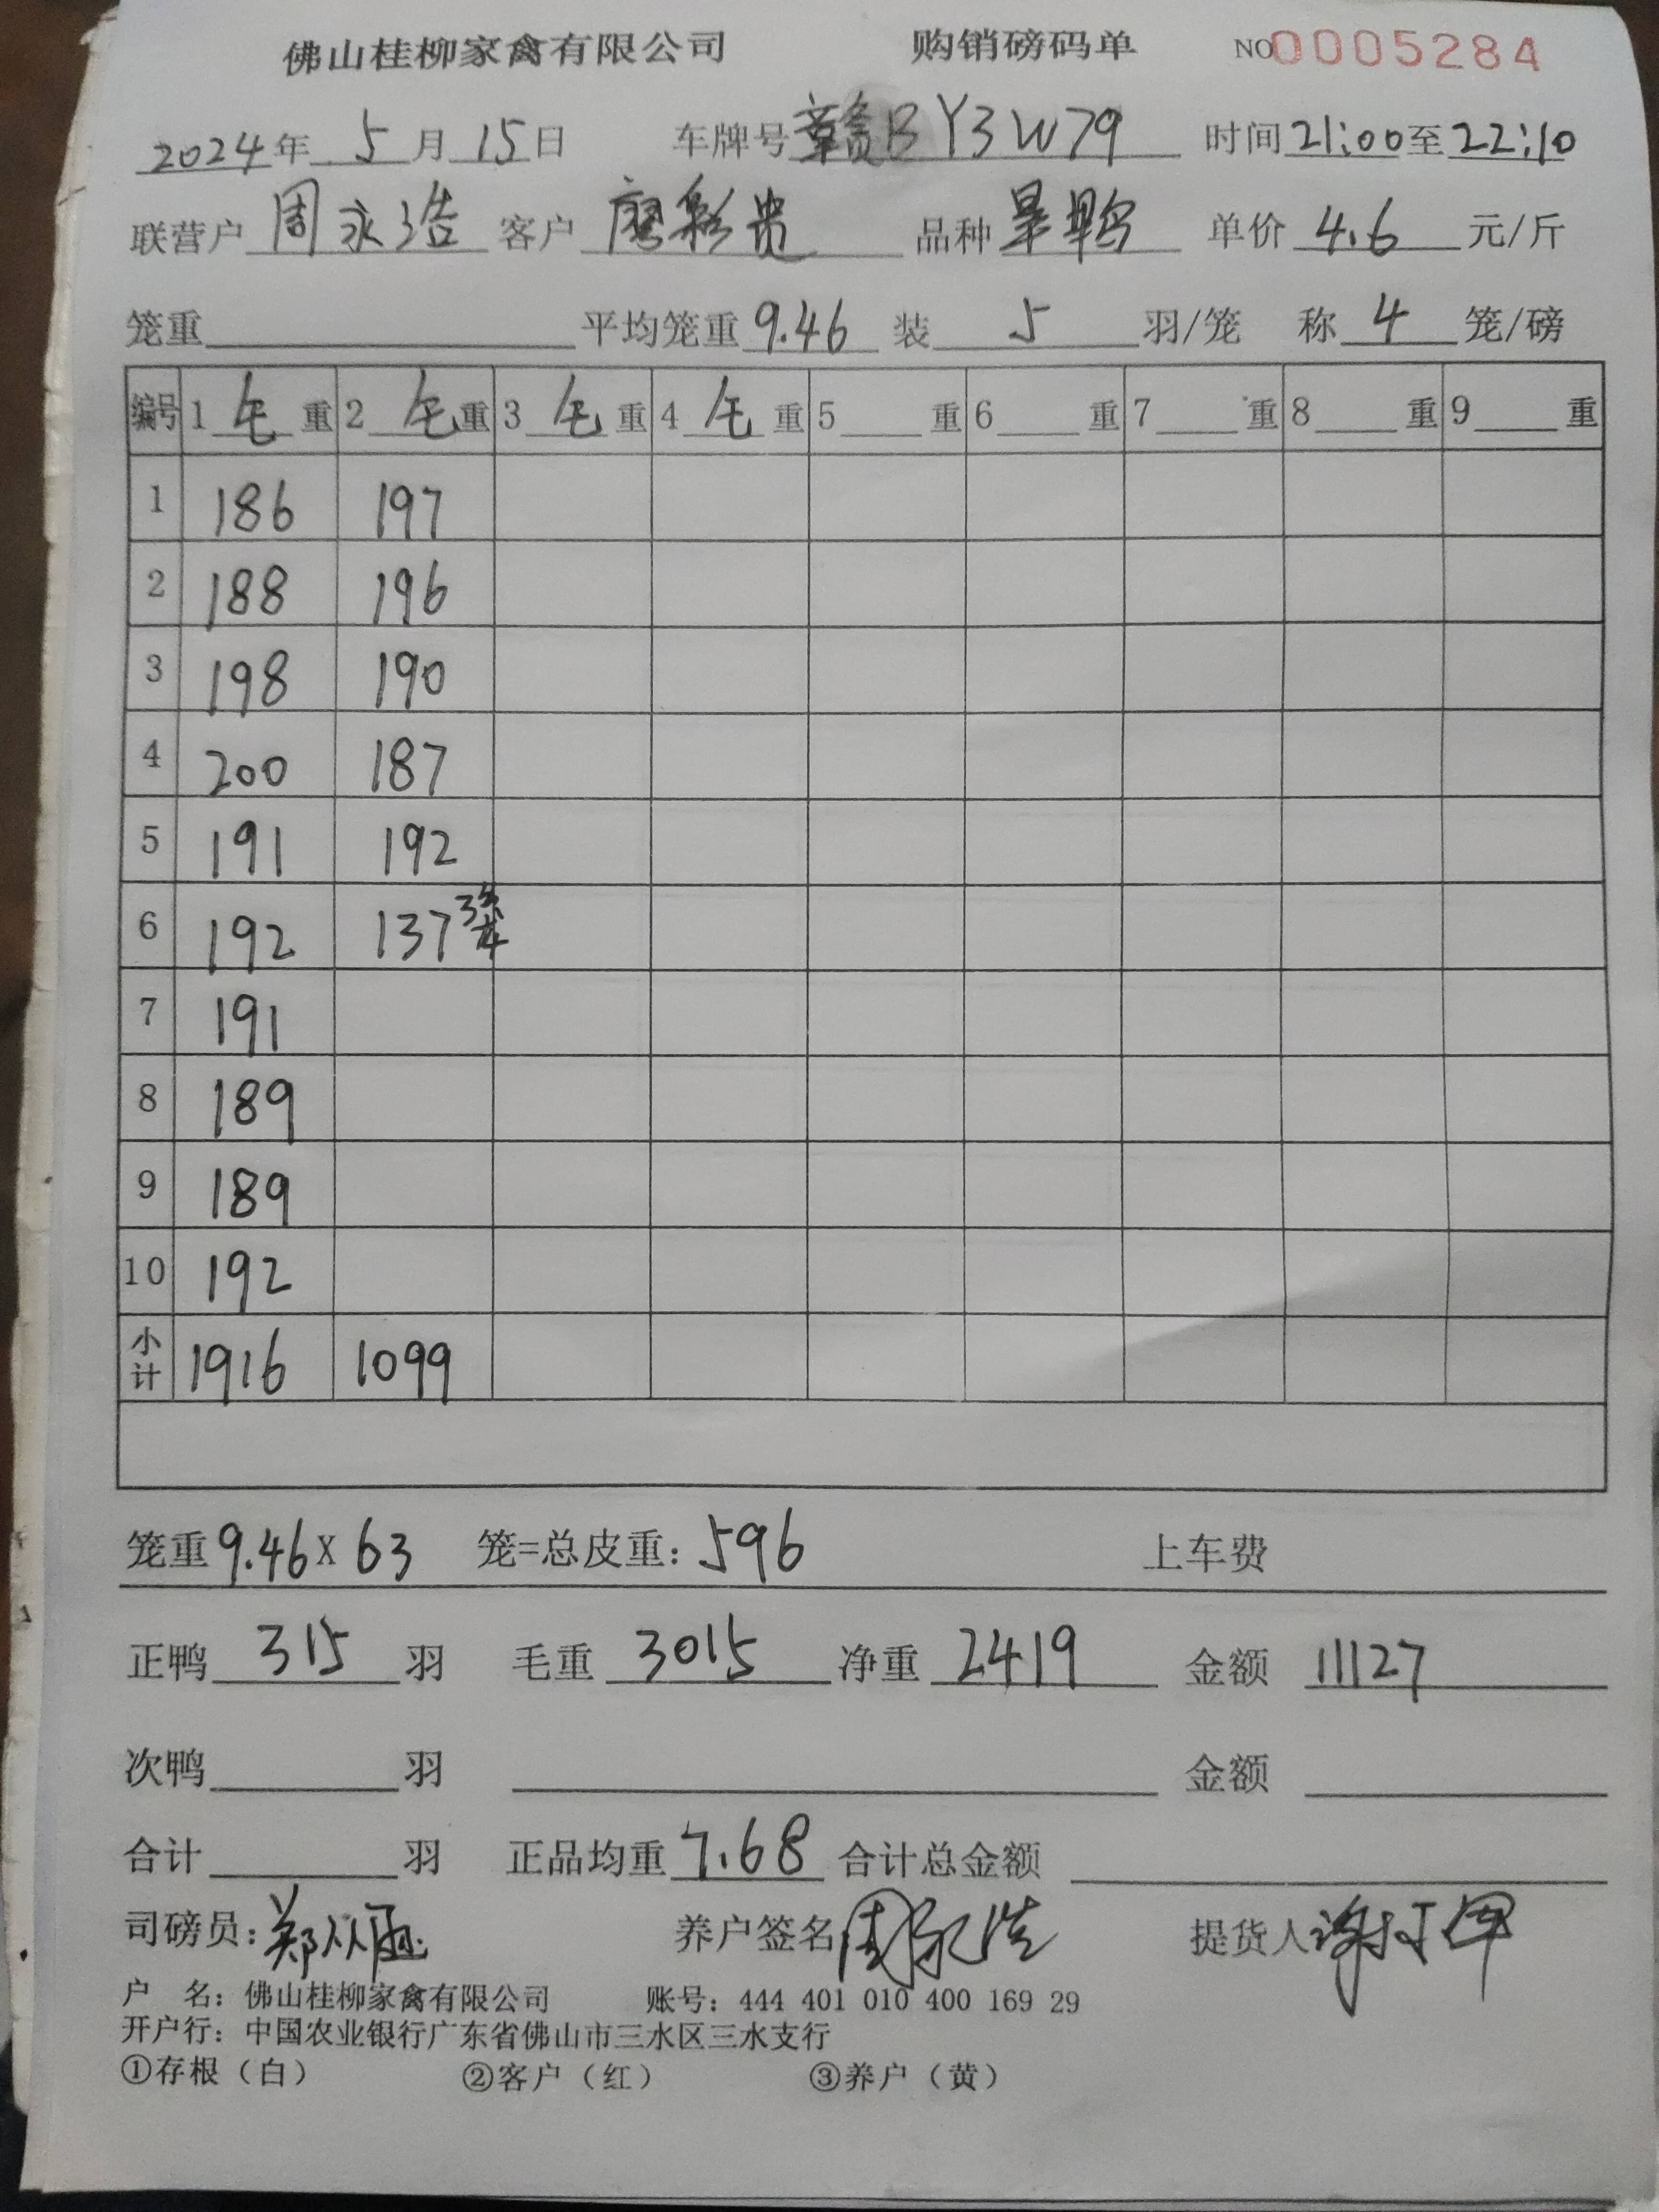 佛山桂柳家禽有限公司 购销磅码单 NO0005284
2024年 5月 15日 车牌号 赣BY3W79 时间 21:00至22:10
联营户 周永浩 客户 廖彩贵 品种 单价 4.6 元/斤
笼重 平均笼重 9.46 装 5 羽/笼 称 4 笼/磅
编号 1 毛 重 2 毛 重 3 毛 重 4 毛 重 5 重 6 重 7 重 8 重 9 重
1 186 197
2 188 196
3 198 190
4 200 187
5 191 192
6 192 137 3
7 191
8 189
9 189
10 192
小计 1916 1099
笼重 9.46 X 63 笼=总皮重: 596 上车费
正鸭 315 羽 毛重 3015 净重 2419 金额 11127
次鸭 羽 金额
合计 羽 正品均重 7.68 合计总金额
司磅员: 养户签名 周永浩 提货人
户 名: 佛山桂柳家禽有限公司 账号: 444 401 010 400 169 29
开户行: 中国农业银行广东省佛山市三水区三水支行
①存根（白） ②客户（红） ③养户（黄）